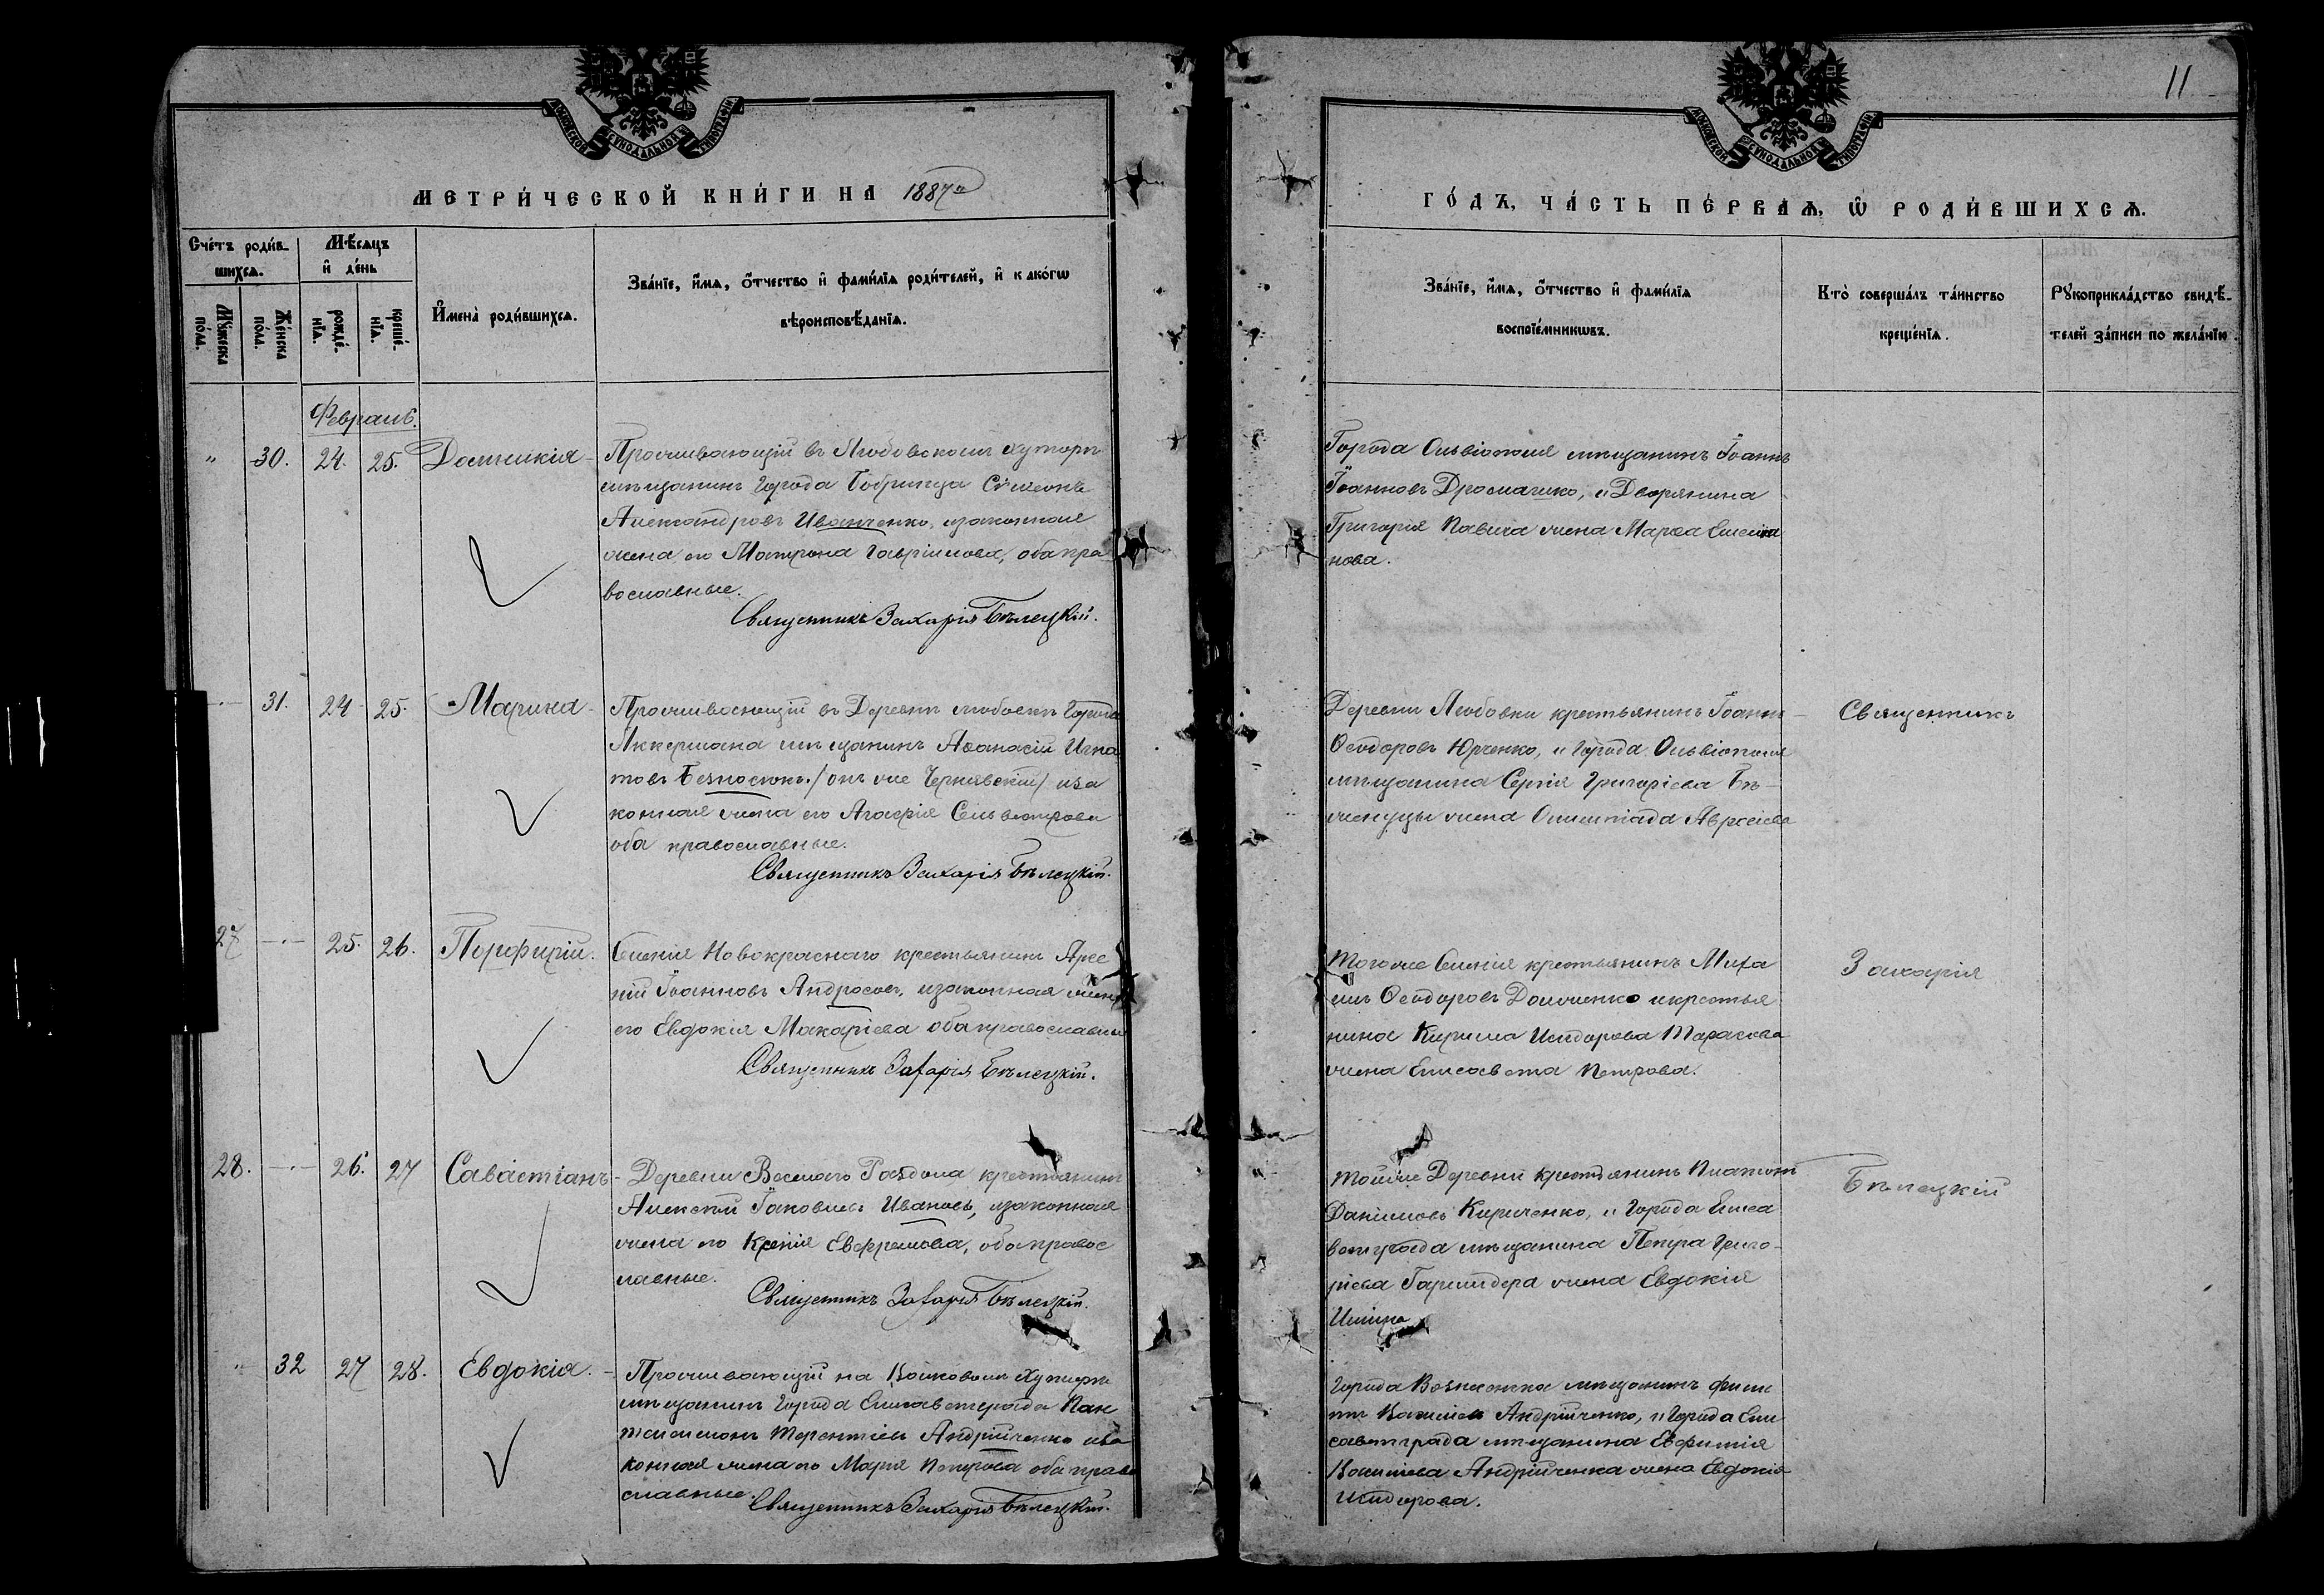 11
МОСКОВСКОЙ СѴНОДАЛЬНОЙ ТИПОГРАФІИ
МЕТРИ́ЧЕСКОЙ КНИ́ГИ НА 1887й
Сче́тъ роди́в-
шихсѧ.
Мѣ́сяцъ
и҆ де́нь
Мꙋ́жеска
по́ла.
Же́нска
по́ла.
рожде́-
нїѧ.
креще́-
нїѧ.
И҆мена̀ роди́вшихсѧ.
Зва́нїе, и҆́мѧ, ѻ҆́тчество и҆ фами́лїѧ роди́телей, и҆ како́гѡ
вѣроисповѣ́данїѧ.
Февраль.
" 30. 24. 25. Домникія
Проживающій въ Любовскомъ хуторѣ
мѣщанинъ города Бобринца Сѵмеонъ
Александровъ Иванченко, изаконная
жена его Матрона Гавріилова, оба пра
вославные.
Священникъ Захарія Бѣлецкій.
31. 24 25. Марина
Проживающій въ Деревнѣ Любовкѣ Города
Аккермана мѣщанинъ Аѳанасій Игна
товъ Безносюкъ /онъ же Чернявскій/ иза
конная жена его Агафія Сильвестрова
оба православные.
Священникъ Захарія Бѣлецкій.
27 25. 26. Порфирій.
Селенія Новокраснаго крестьянинъ Арсе
ній Іоанновъ Андросовъ, изаконная жена
его Евдокія Макаріева оба православные
Священникъ Захарія Бѣлецкій.
28. 26. 27 Савастіанъ
Деревни Веселаго Раздола крестьянинъ
Алексѣй Іаковлевъ Ивановъ, изаконная
жена его Ксенія Евфремова, оба правос
лавные.
Священникъ Захарія Бѣлецкій.
32 27 28. Евдокія.
Проживающій на Хуторѣ
мѣщанинъ Города Елисаветграда Пан
телеимонъ Терентіевъ Андрійченко иза
конная жена его Марія Петрова оба право
славные.
Священникъ Захарія Бѣлецкій.
МОСКОВСКОЙ СѴНОДАЛЬНОЙ ТИПОГРАФІИ
ГО́ДЪ, ЧА́СТЬ ПЕ́РВАѦ, Ѡ҆ РОДИ́ВШИХСѦ.
Зва́нїе, и҆́мѧ, ѻ҆́тчество и҆ фами́лїѧ
воспрїе́мникѡвъ.
Кто̀ соверша́лъ та́инство
креще́нїѧ.
Рꙋкоприкла́дство свидѣ́-
телей за́писи по жела́нїю.
Города Ольвіополя мѣщанинъ Іоаннъ
Іоанновъ и Дворянина
Григорія Павла жена Марѳа
нова.
Деревни Любовки крестьянинъ Іоаннъ
Ѳеодоровъ Юрченко, и Города Ольвіополя
мѣщанина Сергія Григоріева
жена Олимпіада
Тогоже Селенія крестьянинъ Миха
илъ Ѳеодоровъ икрестья
нина Кирилла Исидорова Тарасова
жена Елисавета Петрова.
Тойже Деревни крестьянинъ Платонъ
Даніиловъ Кириченко, и Города Елиса
ветграда мѣщанина Петра Григо-
ріева жена Евдокія
Города Вознесенска мѣщанинъ Филип
пъ Васильевъ Андрійченко, и Города Ели
саветграда мѣщанина Евфимія
Васильева Андрійченка жена Евдокія
Исидорова.
Священникъ
Захарія
Бѣлецкій